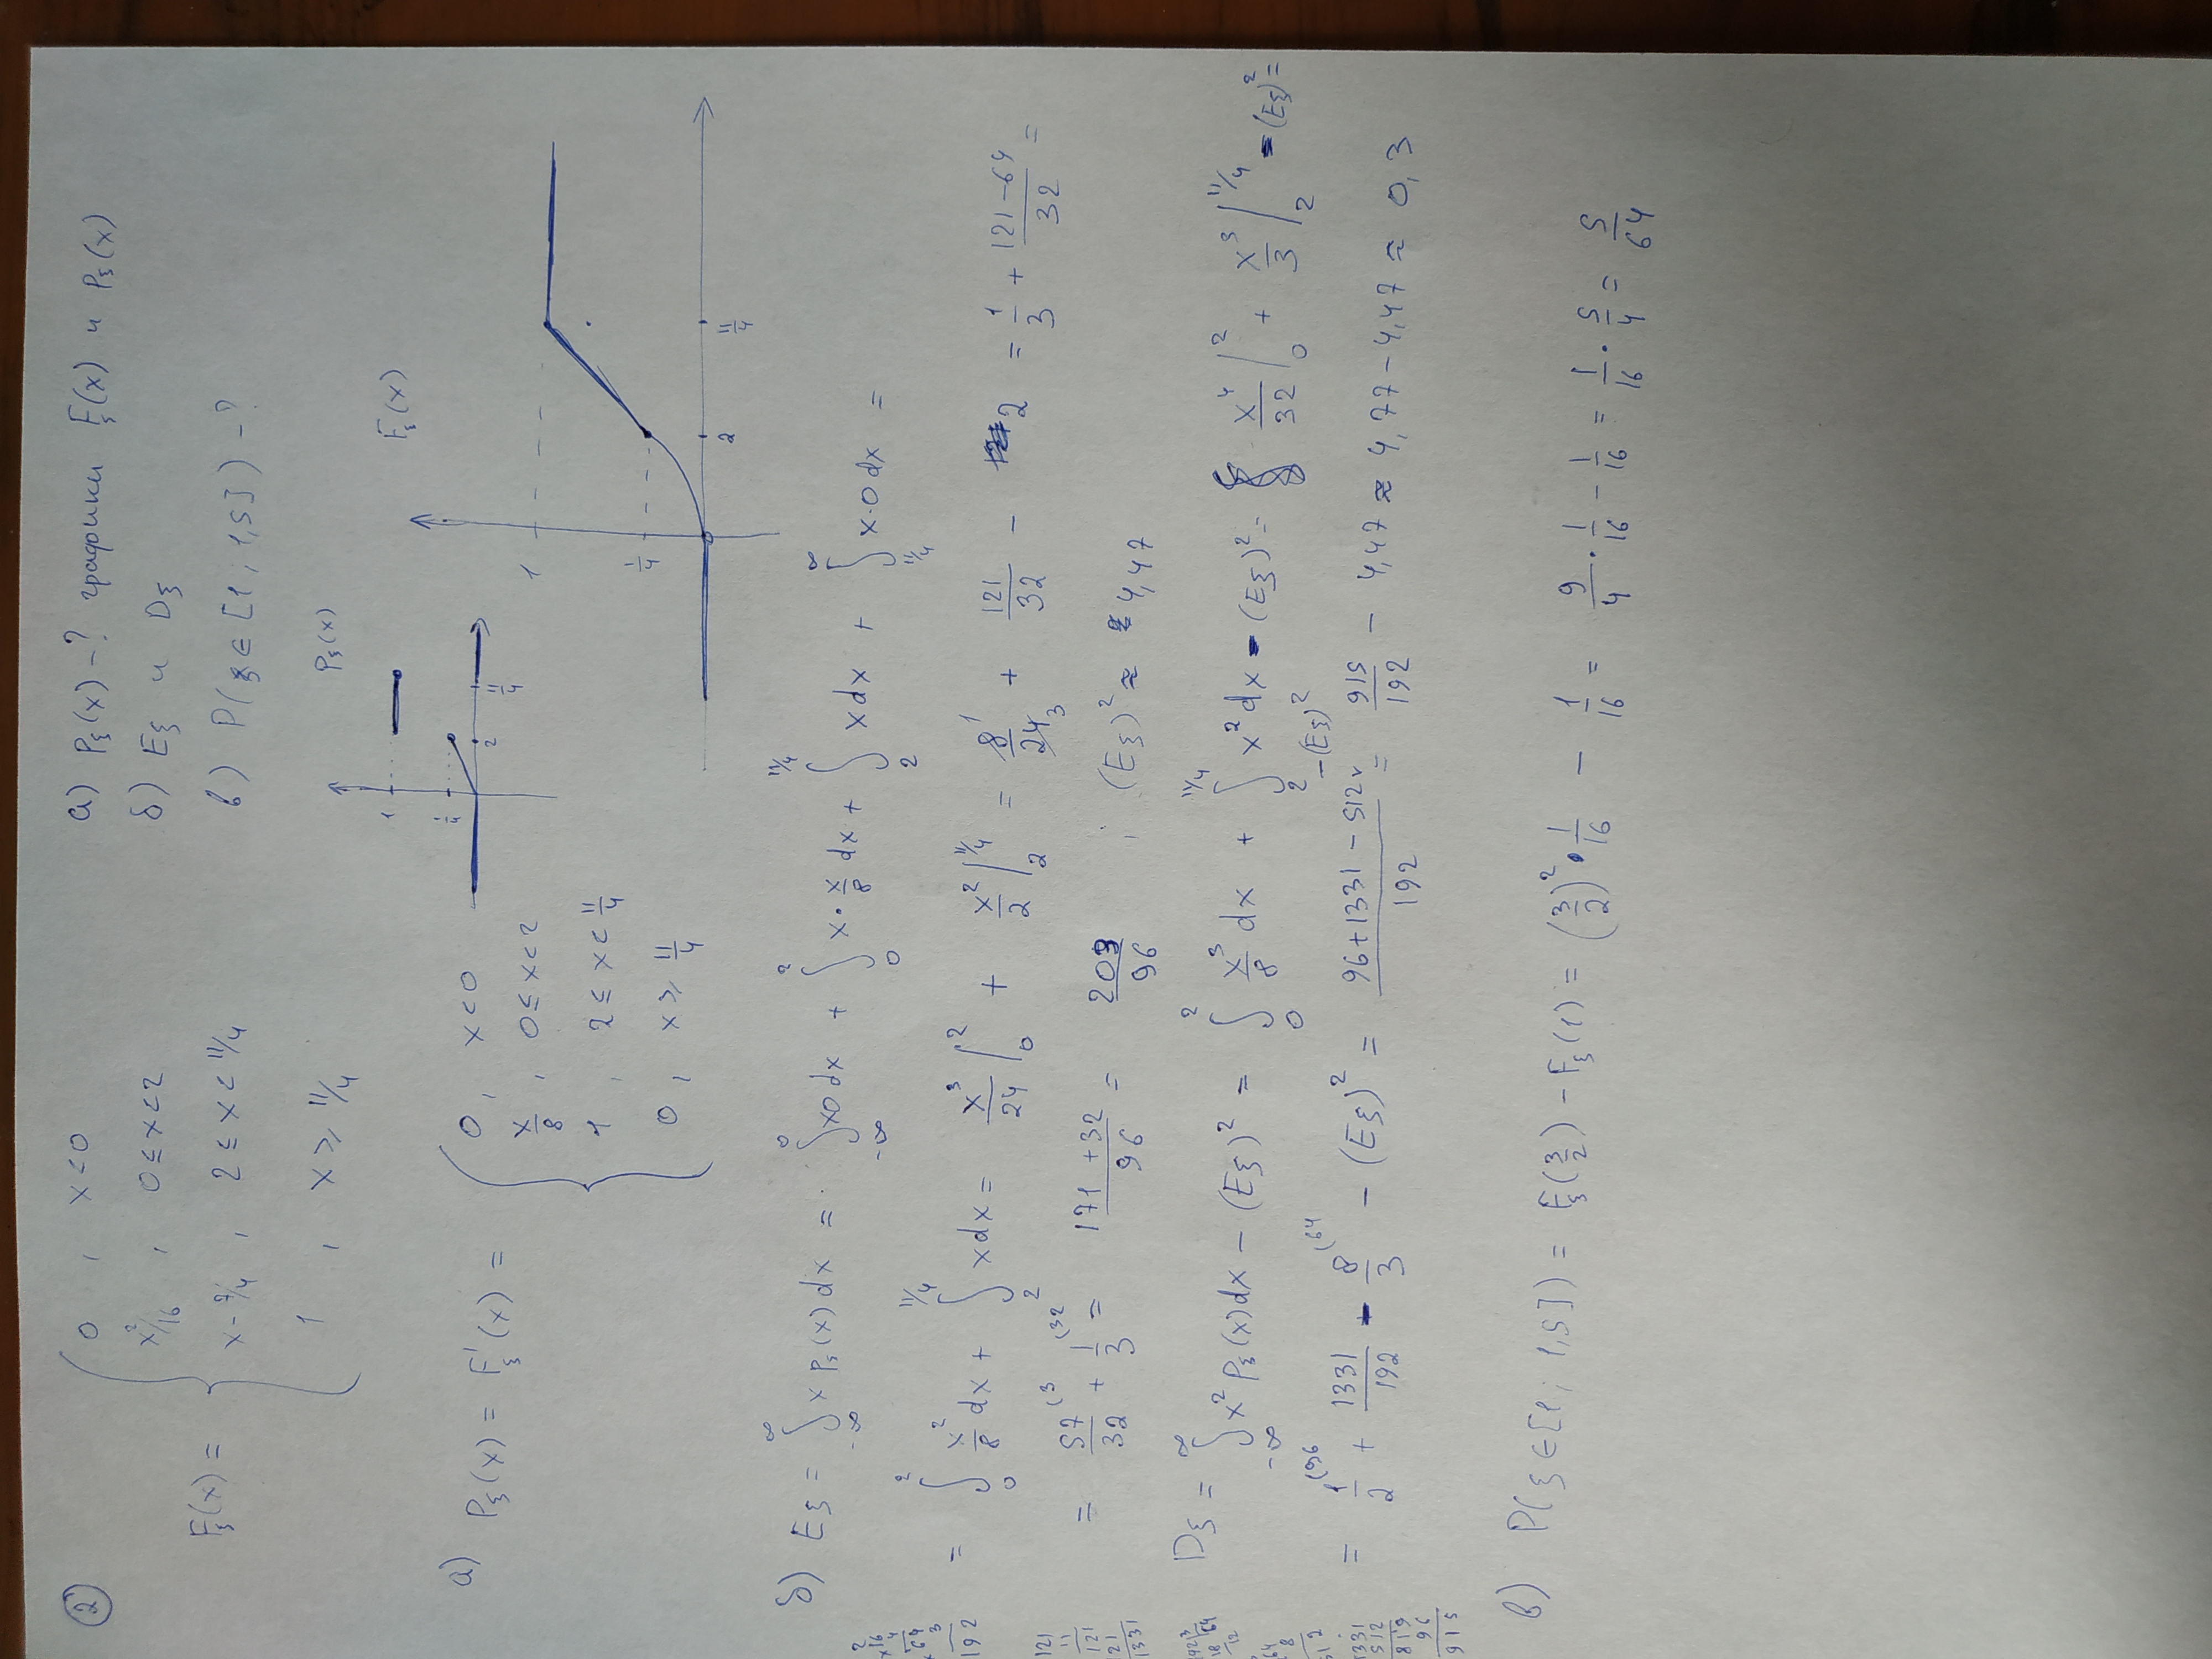 2
F_ξ(x) = { 0 , x<0
x²/16 , 0≤x<2
x-7/4 , 2≤x<11/4
1 , x≥11/4
а) P_ξ(x) -? графики F_ξ(x) и P_ξ(x)
б) Eξ и Dξ
в) P(ξ∈[1; 1,5]) -?
P_ξ(x)
1
1/4
2 11/4
F_ξ(x)
1
1/4
2 11/4
а) P_ξ(x) = F'_ξ(x) = { 0, x<0
x/8 , 0≤x<2
1 , 2≤x<11/4
0 , x≥11/4
б) Eξ = ∫_{-∞}^{∞} x P_ξ(x)dx = ∫_{-∞}^{0} x0dx + ∫_0^2 x·x/8 dx + ∫_2^{11/4} xdx + ∫_{11/4}^{∞} x·0dx =
= ∫_0^2 x²/8 dx + ∫_2^{11/4} xdx = x³/24 |_0^2 + x²/2 |_2^{11/4} = 8/24 + 121/32 - 2 = 1/3 + (121-64)/32 =
= 57/32 + 1/3 = (171+32)/96 = 203/96 ; (Eξ)² ≈ 4,47
Dξ = ∫_{-∞}^{∞} x² P_ξ(x)dx - (Eξ)² = ∫_0^2 x³/8 dx + ∫_2^{11/4} x²dx - (Eξ)² = x⁴/32 |_0^2 + x³/3 |_2^{11/4} - (Eξ)² =
= 1/2 + 1331/192 - 8/3 - (Eξ)² = (96+1331-512)/192 -(Eξ)² = 915/192 - 4,47 ≈ 4,77-4,47 ≈ 0,3
в) P(ξ∈[1; 1,5]) = F_ξ(3/2) - F_ξ(1) = (3/2)²·1/16 - 1/16 = 9/4·1/16 - 1/16 = 1/16·5/4 = 5/64
121
11
121
121
1331
1331
512
819
96
915